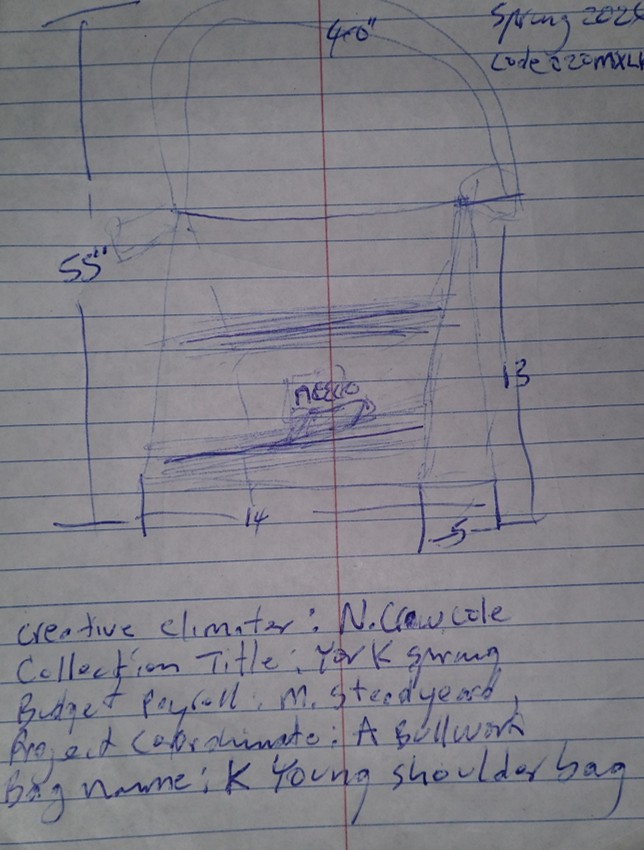 Spring 2025
40"
55"
13
14
5
Creative Climater: N. Crawcole
Collection Title: York Spring
Budget Payroll: M. Steedyeard,
Project Coordinate: A Bullwork
Bag name: K Young shoulder bag